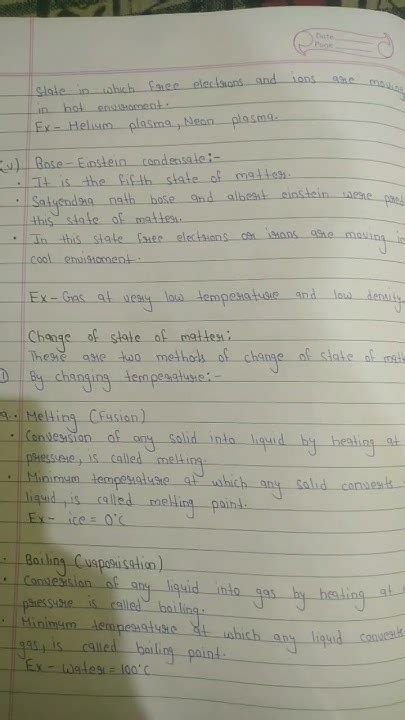 Date
Page
state in which free electrons and ions are moving
in hot enviroment.
Ex - Helium plasma, Neon plasma.
v) Bose-Einstein condensate:-
• It is the fifth state of matter.
• Satyendra nath bose and albert einstein were
this state of matter.
• In this state free electrons or irons are moving
cool enviroment.
Ex - Gas at very low temperature and low density
Change of state of matter:
There are two methods of change of state of
By changing temperature:-
a. Melting (Fusion)
• Conversion of any solid into liquid by heating at
pressure, is called melting.
• Minimum temperature at which any solid converts
liquid, is called melting point.
Ex - ice = 0°C
• Boiling (Vaporisation)
• Conversion of any liquid into gas by heating at
pressure is called boiling.
• Minimum temperature at which any liquid converts
gas, is called boiling point.
Ex - Water = 100°C